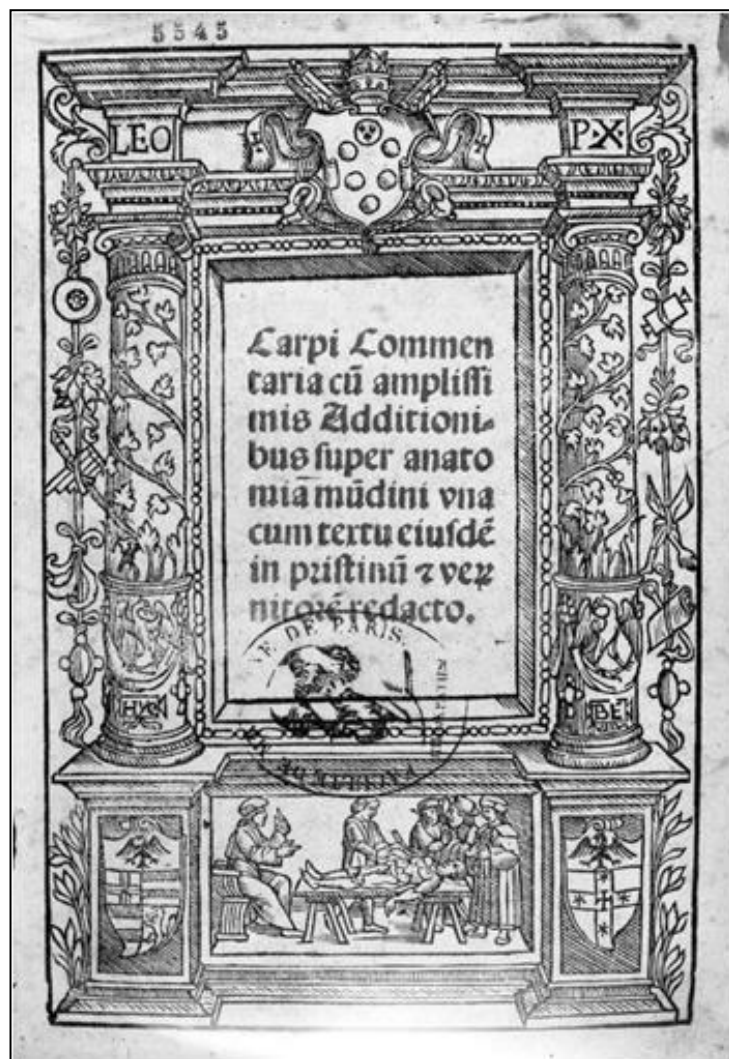 5545
LEO
P·X·
Carpi Commen
taria cū ampliſſi
mis Additioni⸗
bus ſuper anato
miā mūdini vna
cum textu eiuſdē
in priſtinū ⁊ ver
nitorē redacto.
DE PARIS
BE